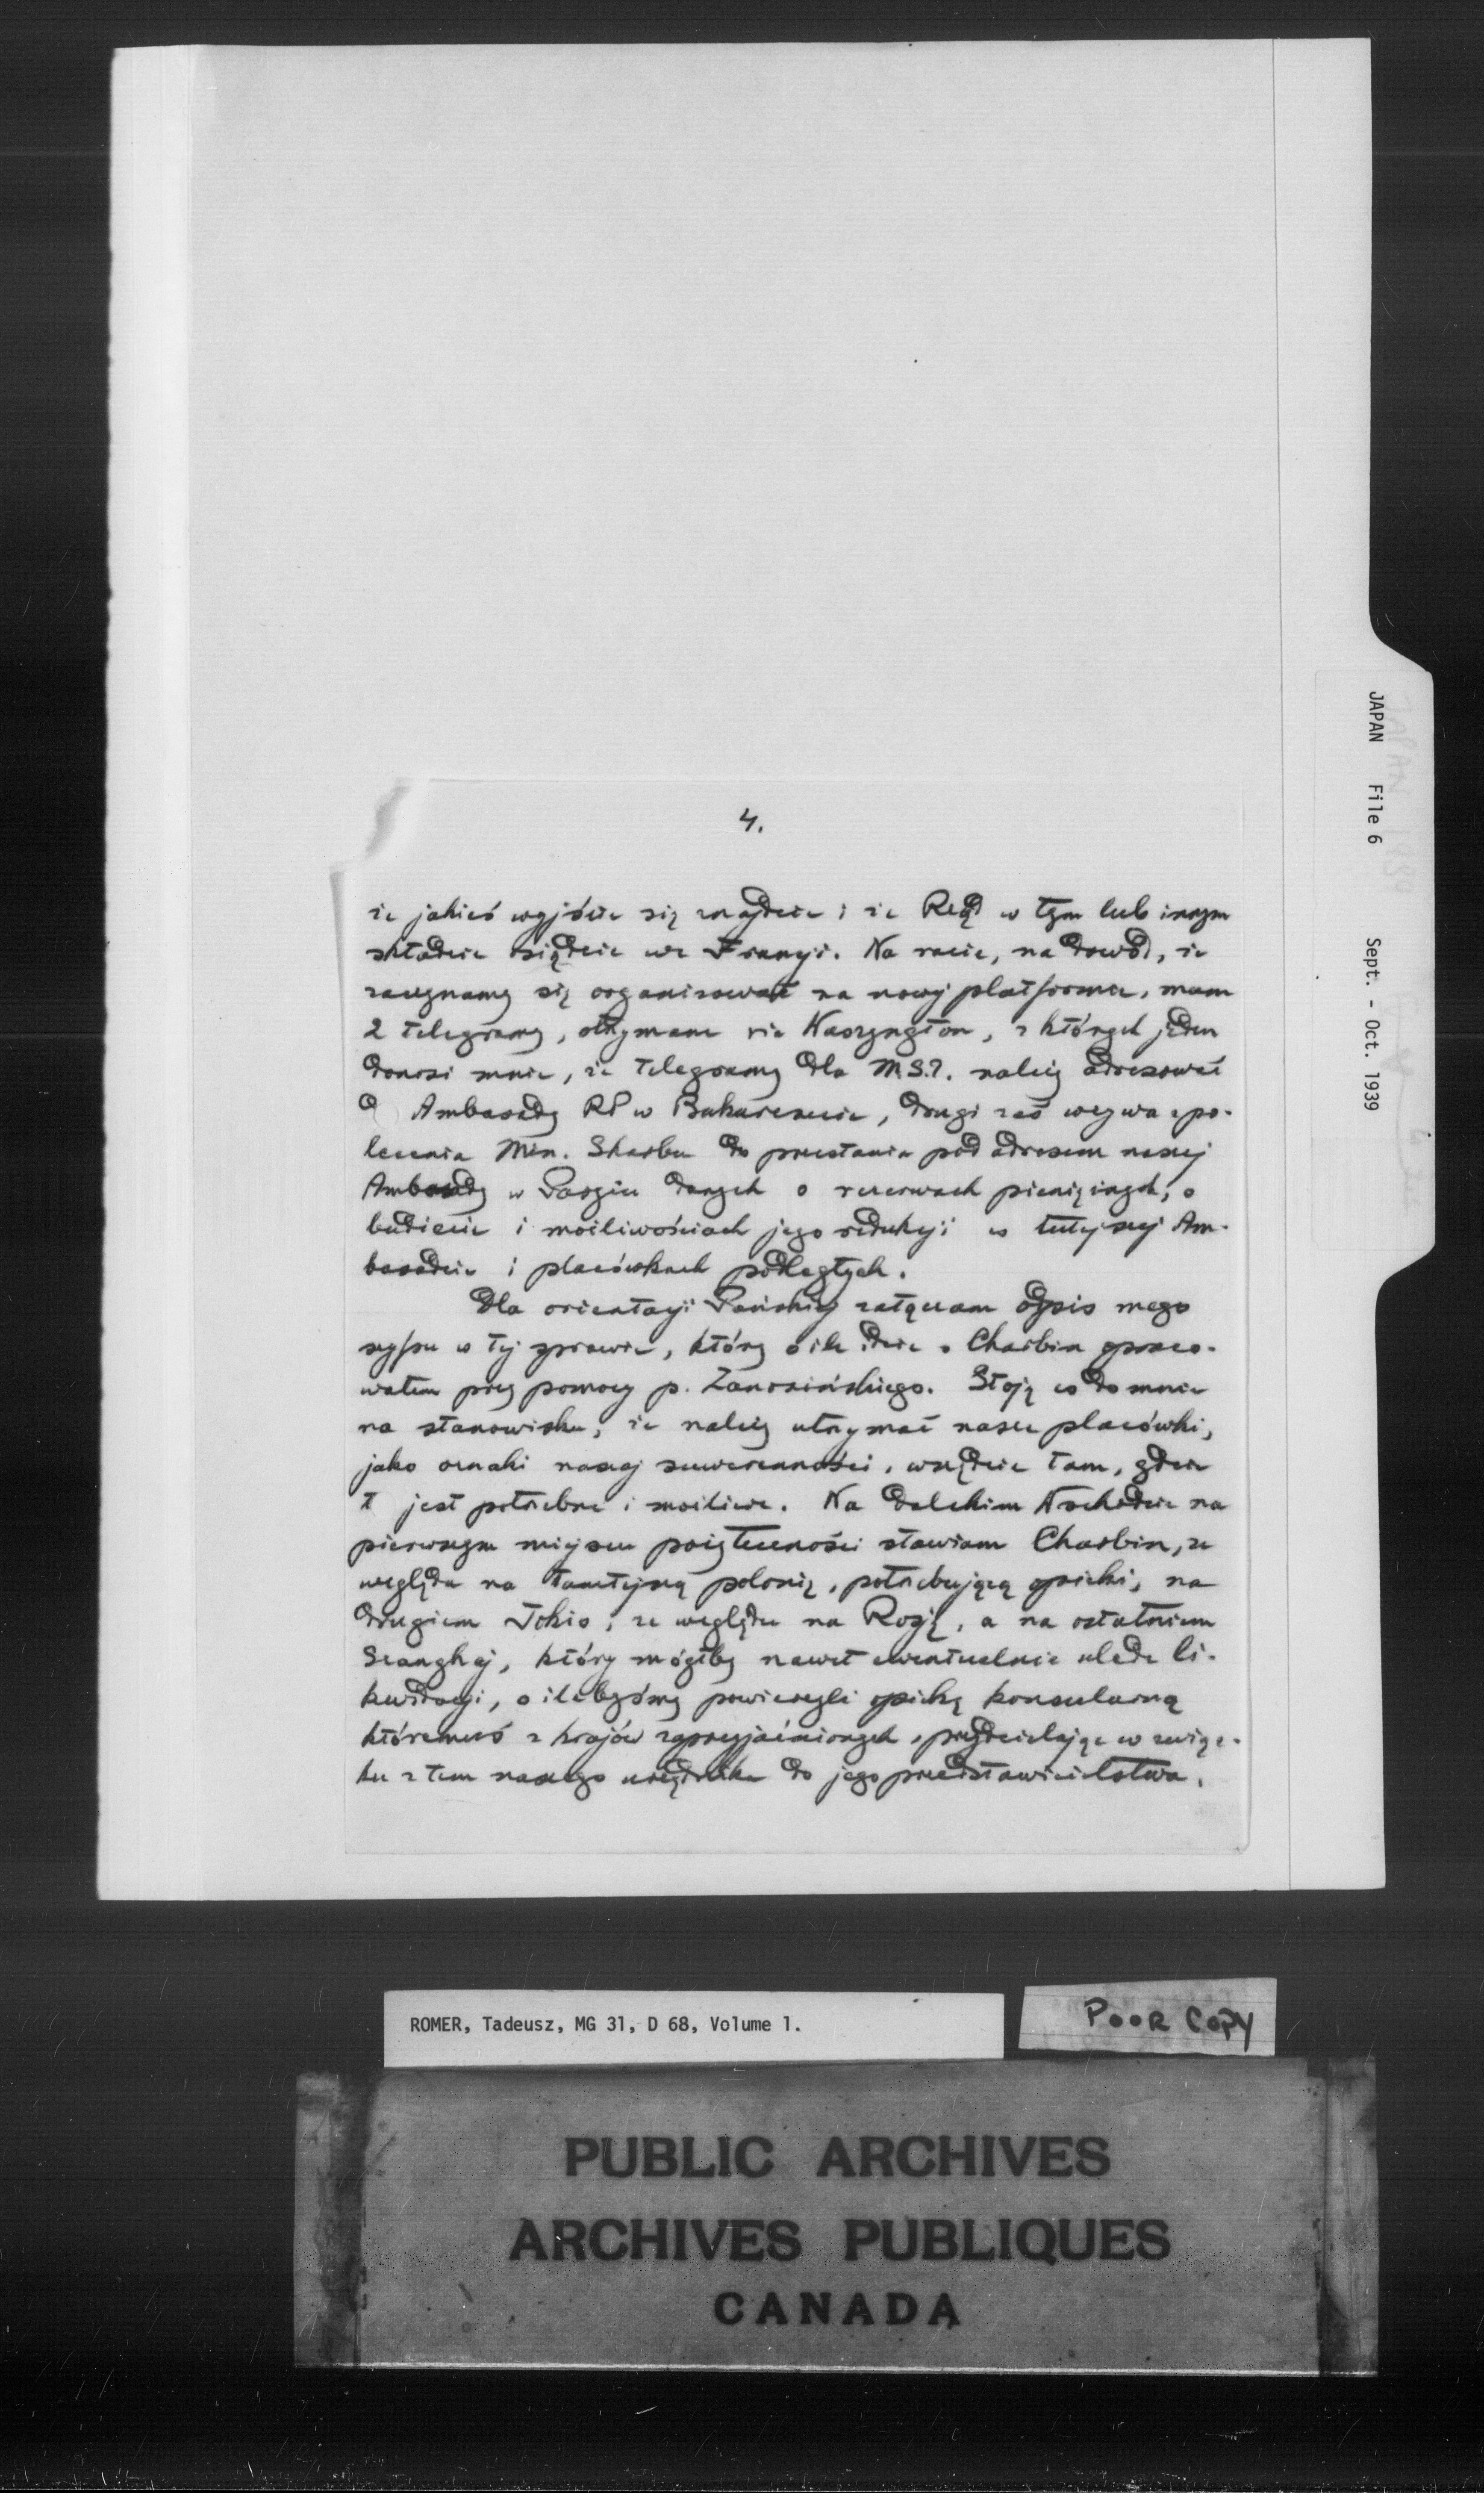 4.
że jakieś wyjście się znajdzie i że Rząd w tym lub innym
składzie osiądzie we Francji. Na razie, na dowód, że
zaczynamy się organizować na nowej platformie, mam
2 telegramy, otrzymane via Waszyngton, z których jeden
donosi mnie, że telegramy dla M.S.Z. należy adresować
d Ambasady RP w Bukareszcie, drugi zaś wzywa z po-
lecenia Min. Skarbu do przesłania pod adresem naszej
Ambasady w Paryżu danych o rezerwach pieniężnych, o
budżecie i możliwościach jego redukcji w tutejszej Am-
basadzie i placówkach podległych.
Dla orientacji Pańskiej załączam odpis mego
szyfru w tej sprawie, który o ile idzie o Charbin opraco-
wałem przy pomocy p. Zanozińskiego. Stoję co do mnie
na stanowisku, że należy utrzymać nasze placówki,
jako oznaki naszej suwerenności, wszędzie tam, gdzie
t jest potrzebne i możliwe. Na Dalekim Wschodzie na
pierwszym miejscu pożyteczności stawiam Charbin, ze
względu na tamtejszą polonię, potrzebującą opieki, na
drugiem Tokio, ze względu na Rosję, a na ostatniem
Szanghaj, który mógłby nawet ewentualnie uledz li-
kwidacji, o ilebyśmy powierzyli opiekę konsularną
któremuś z krajów zaprzyjaźnionych, przydzielając w związ-
ku z tem naszego urzędnika do jego przedstawicielstwa.
JAPAN File 6 Sept. - Oct. 1939
ROMER, Tadeusz, MG 31, D 68, Volume 1.
POOR COPY
PUBLIC ARCHIVES
ARCHIVES PUBLIQUES
CANADA